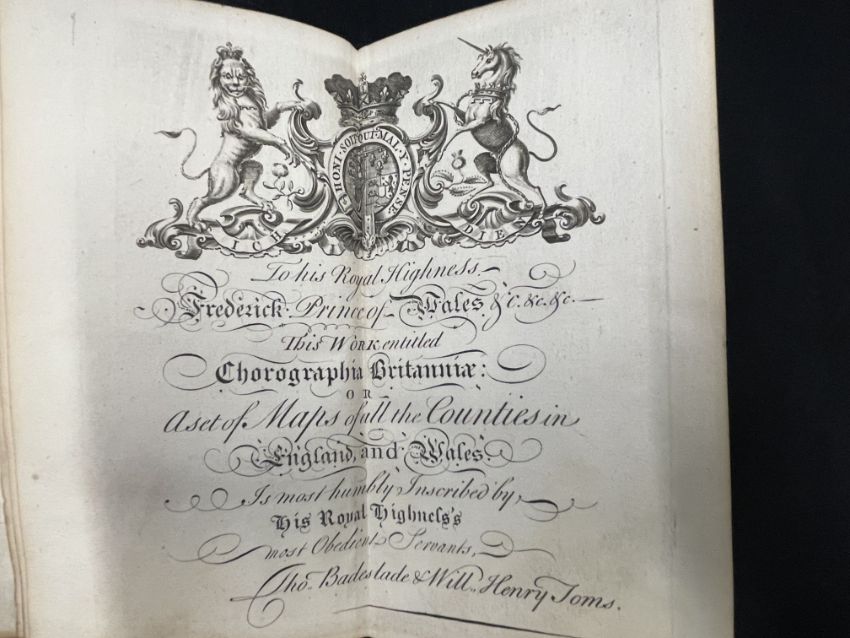 HONI·SOIT·QUI·MAL·Y·PENSE
ICH DIEN
To his Royal Highness
Frederick Prince of Wales &c. &c. &c.
This Work entitled
Chorographia Britanniæ:
OR
A set of Maps of all the Counties in
England, and Wales
Is most humbly Inscribed by,
His Royal Highness's
most Obedient Servants,
Tho.s Badeslade & Will.m Henry Toms.